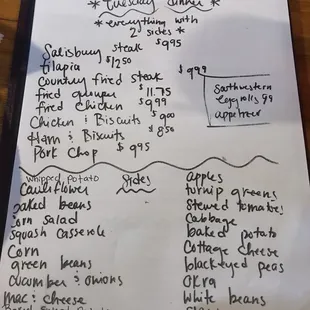 * Tuesday Dinner *
* everything with
2 sides *
Salisbury steak $9.95
tilapia $12.50
Country fried steak $9.99
fried grouper $11.75
fried Chicken $9.99
Chicken & Biscuits $9.00
Ham & Biscuits $8.50
Pork Chop $9.95
Southwestern
Eggrolls 99
appetizer
Sides
whipped potato
Cauliflower
baked beans
corn salad
squash casserole
Corn
green beans
cucumber & onions
mac & cheese
apples
turnip greens
Stewed tomatoes
Cabbage
baked potato
Cottage cheese
blackeyed peas
OKra
White beans